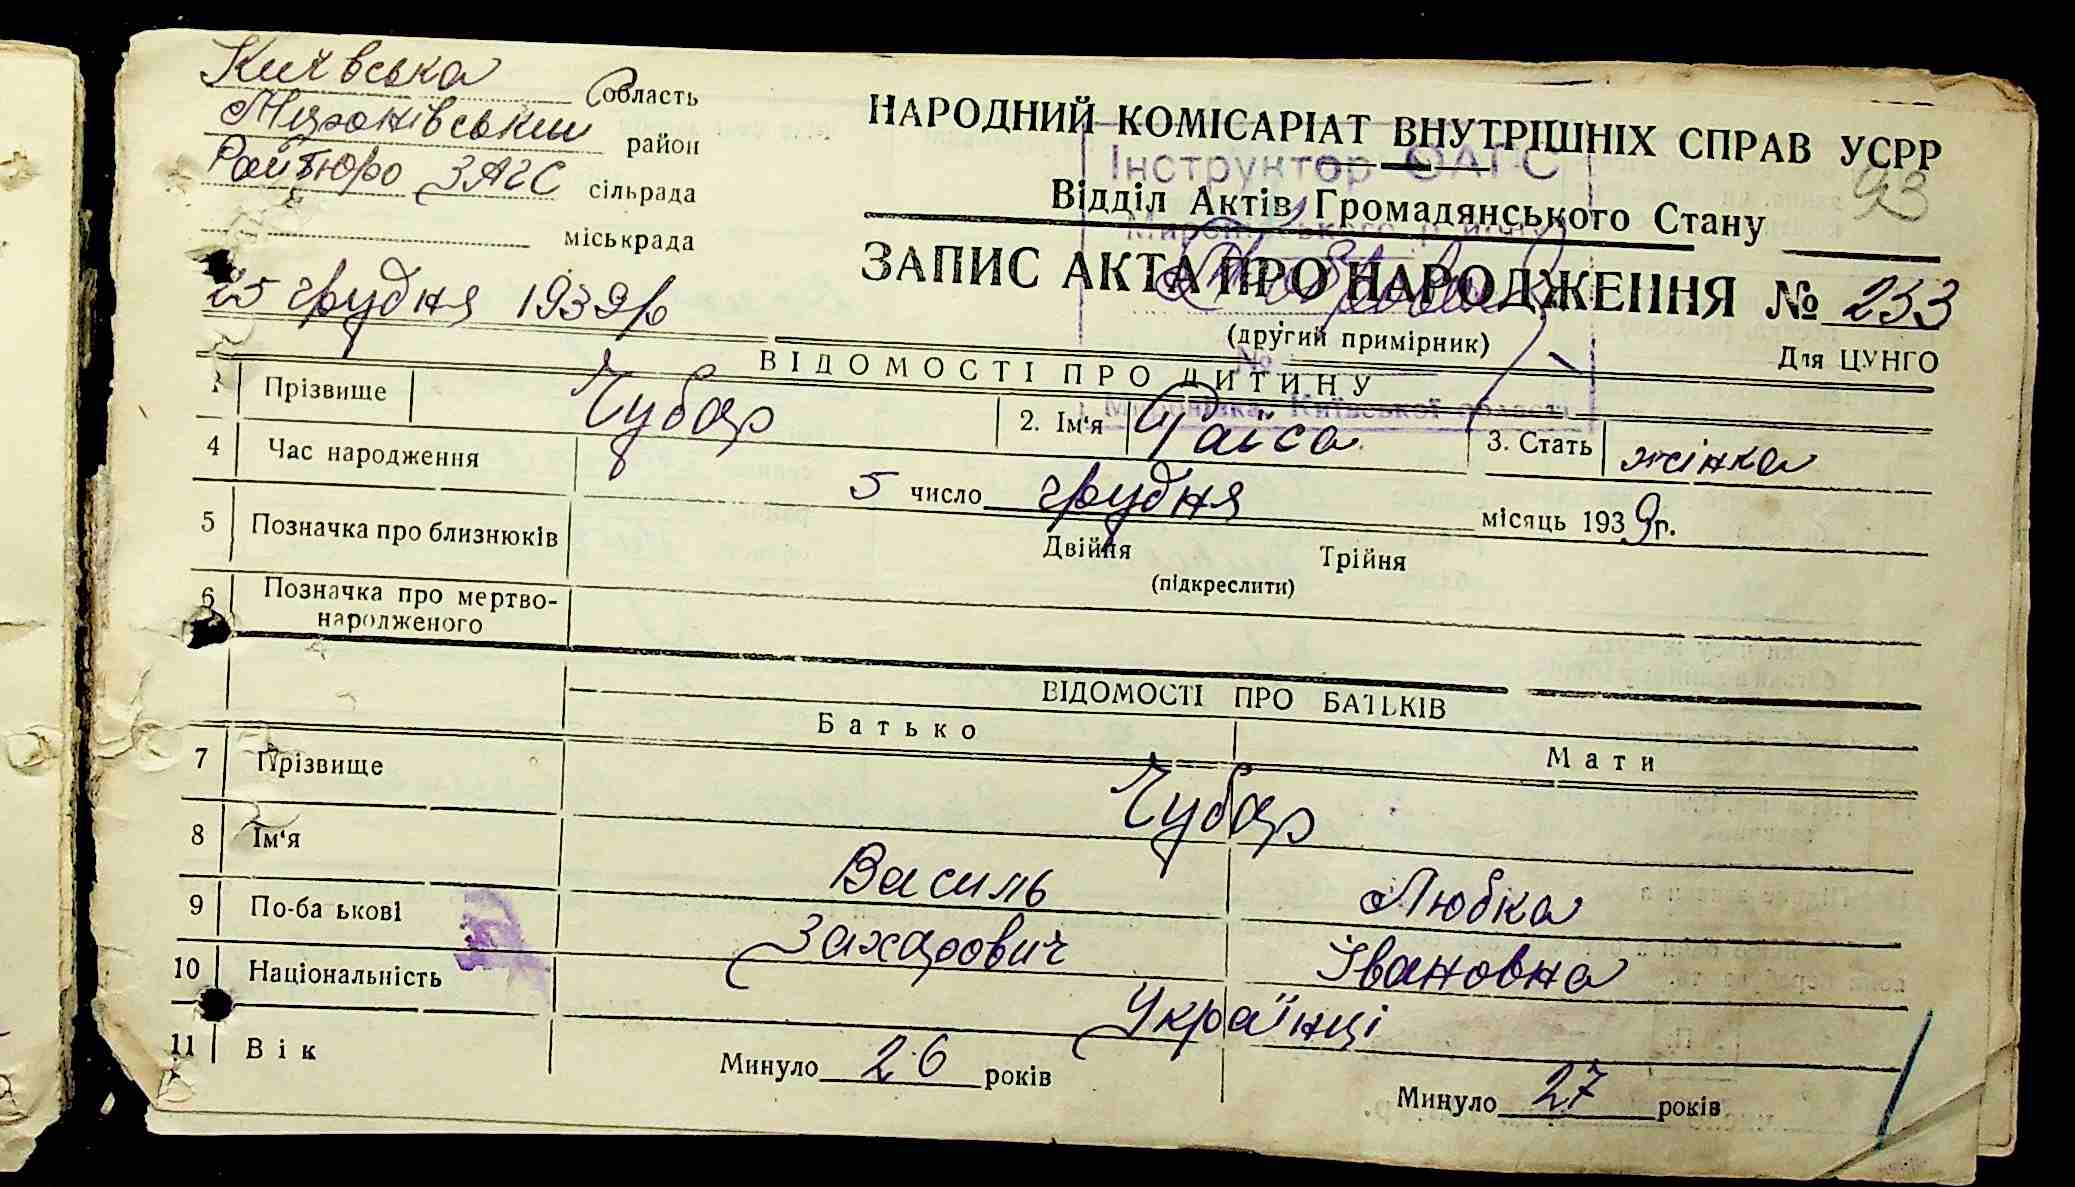 Київська область
Миронівський район
Райбюро ЗАГС сільрада
міськрада
25 грудня 1939р
НАРОДНИЙ КОМІСАРІАТ ВНУТРІШНІХ СПРАВ УСРР
93
Відділ Актів Громадянського Стану
ЗАПИС АКТА ПРО НАРОДЖЕННЯ № 233
(другий примірник)
Для ЦУНГО
Інструктор ОАГС
Миронівського району
№
м. Миронівка, Київської області
ВІДОМОСТІ ПРО ДИТИНУ
1 Прізвище Чубар 2. Ім'я Раїса 3. Стать жінка
4 Час народження 5 число грудня місяць 1939р.
5 Позначка про близнюків Двійня Трійня
(підкреслити)
6 Позначка про мертво-
народженого
ВІДОМОСТІ ПРО БАТЬКІВ
Батько Мати
7 Прізвище Чубар
8 Ім'я Василь Любка
9 По-ба ькові Захарович Івановна
10 Національність Українці
11 Вік Минуло 26 років Минуло 27 років